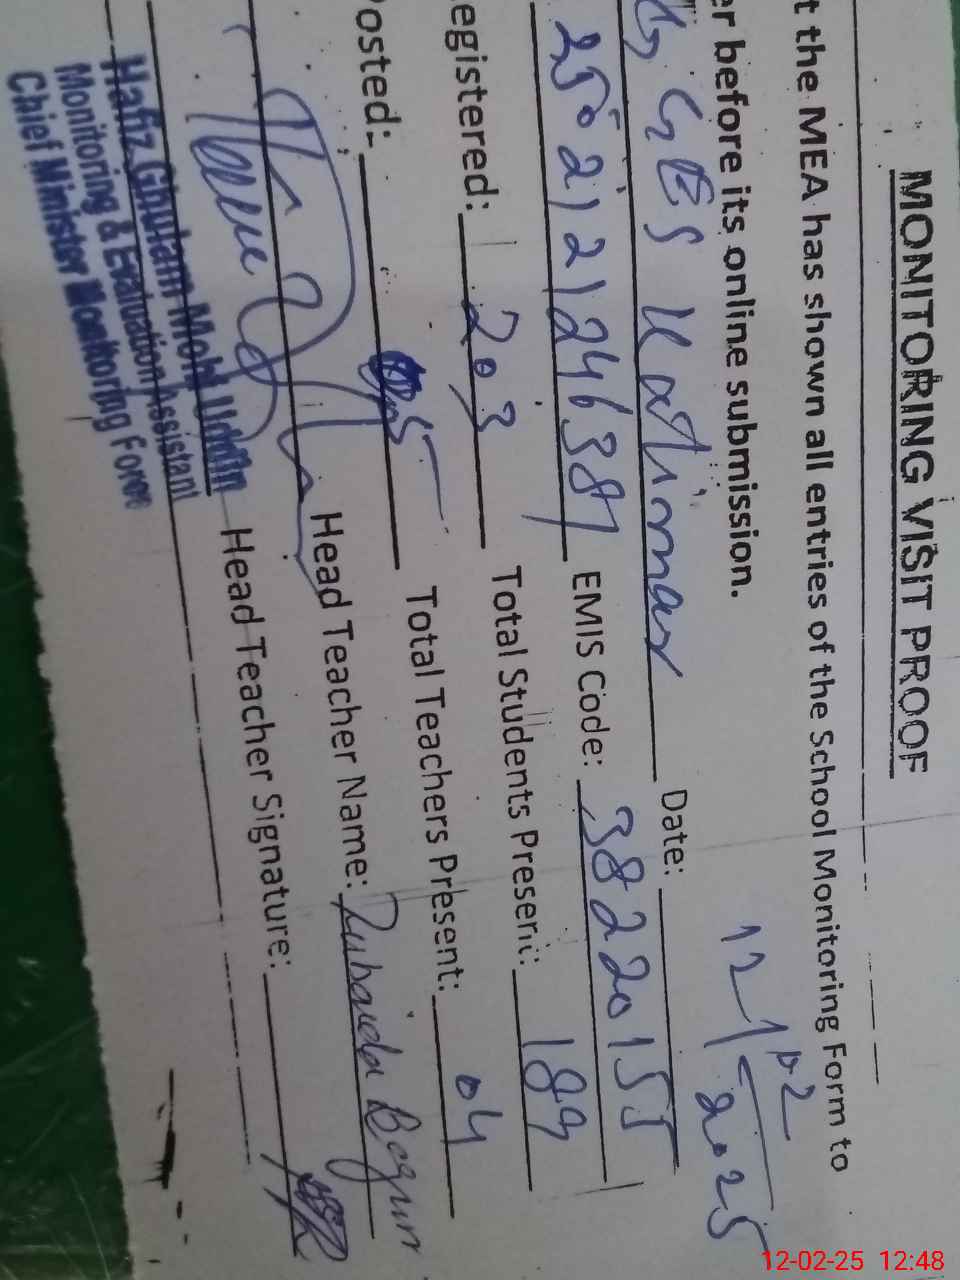 MONITORING VISIT PROOF
t the MEA has shown all entries of the School Monitoring Form to
er before its online submission.
Date: 12/02/2025
EMIS Code: 38220155
egistered: 203 Total Students Present: 189
Posted:- 05 Total Teachers Present: 04
Head Teacher Name: Zubaida Begum
Head Teacher Signature:
Hafiz Ghulam Mohi Uddin
Monitoring & Evaluation Assistant
Chief Minister Monitoring Force
12-02-25 12:48